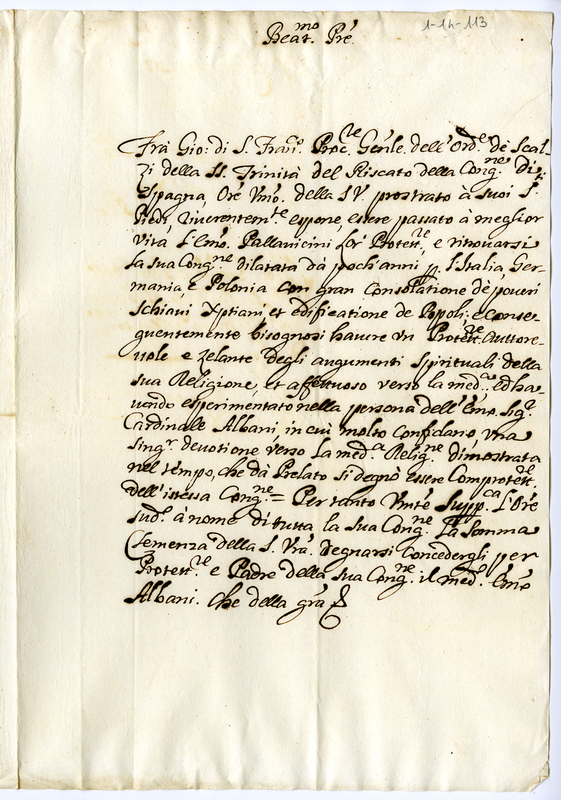 1-14-113
Beat.mo Pre
Frà Gio: di S. Fran.co Proc.re Gen̄le dell'Ord.e de Scal-
zi della SS. Trinità del Riscato della Cong.ne di
Spagna, Ore Vmo. della S.V. prostrato à suoi S.i
Piedi, riuerentem.te espone, essere passato à meglior
vita l'Emo. Pallauicini lor Protett.re, e ritrouarsi
la sua Cong.ne dilatata dà poch'anni p. l'Italia, Ger-
mania, e Polonia con gran Consolatione de poueri
schiaui Xptiani, et edificatione de Popoli; e conse-
guentemente bisognosi hauere vn Protett.re Auttore-
uole e zelante degli augumenti spirituali della
sua Religione, et affettuoso verso la med.a: ed ha-
uendo esperimentato nella persona dell'Emo. Sig.r
Cardinale Albani, in cui molto confidano, vna
sing.r deuotione verso la med.a Relig.ne dimostrata
nel tempo, che dà Prelato si degnò essere Comprotett.re
dell'istessa Cong.ne = Per tanto Vmte Supp.ca L'Ore
sud.o à nome di tutta la sua Cong.ne La somma
Clemenza della S. Vra. degnarsi Concedergli per
Protett.re e Padre della sua Cong.ne il med.o Emo
Albani. Che della gra